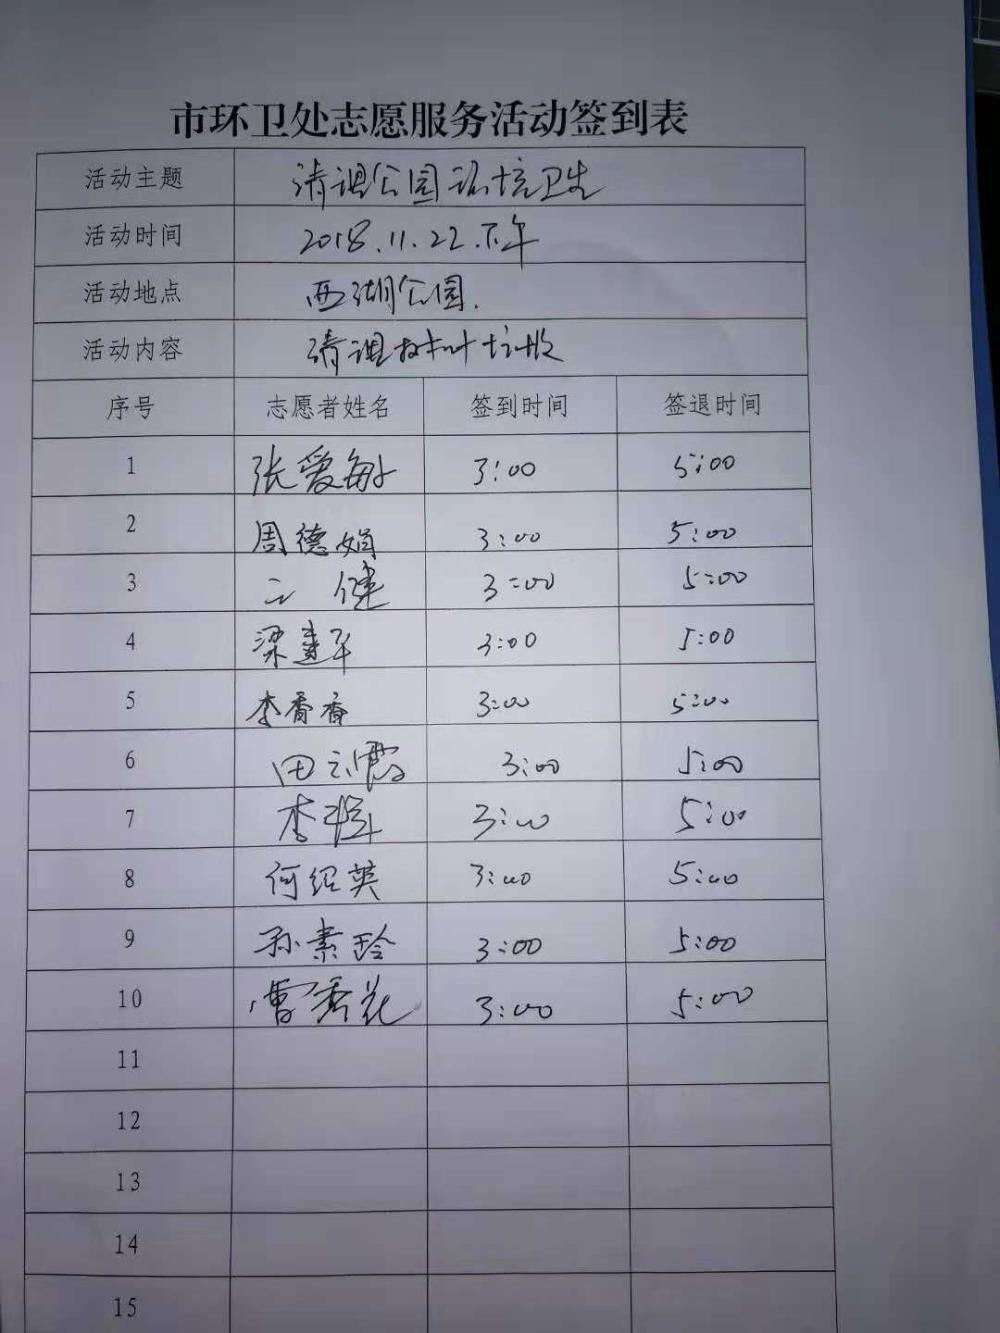 市环卫处志愿服务活动签到表
活动主题 清理公园环境卫生
活动时间 2018.11.22.下午
活动地点 西湖公园.
活动内容 清理树叶垃圾
序号 志愿者姓名 签到时间 签退时间
1 张爱敏 3:00 5:00
2 周德娟 3:00 5:00
3 健 3:00 5:00
4 梁建军 3:00 5:00
5 李香香 3:00 5:00
6 田云霞 3:00 5:00
7 李 3:00 5:00
8 何绍英 3:00 5:00
9 孙素玲 3:00 5:00
10 曹秀花 3:00 5:00
11
12
13
14
15